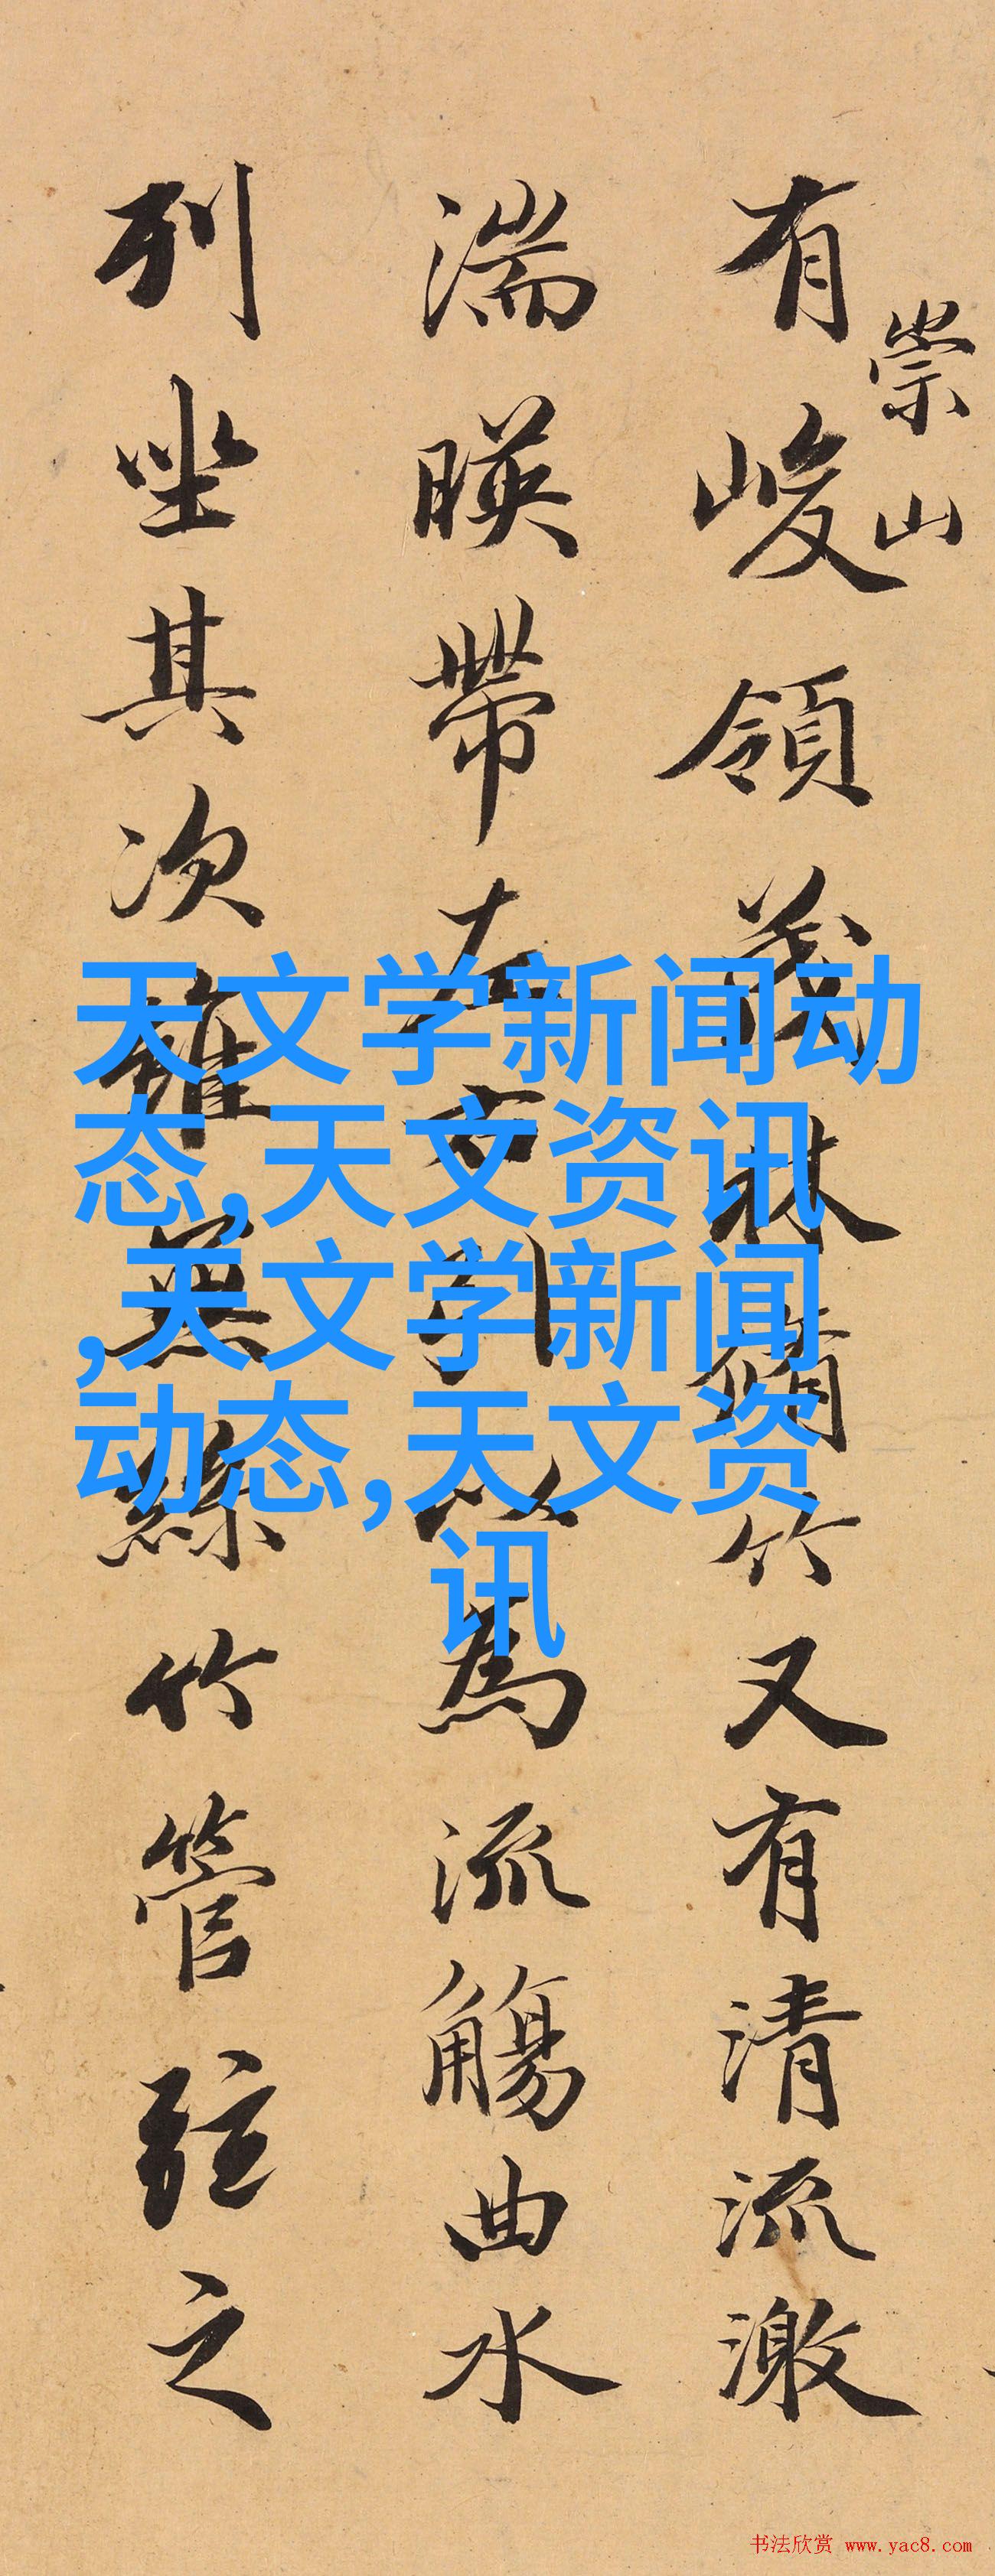 崇山
有峻領茂林脩竹又有清流激
湍暎帶左右引以為流觴曲水
列坐其次雖無絲竹管弦之
天文学新闻动
态,天文资讯
,天文学新闻
动态,天文资
讯
书法欣赏 www.yac8.com